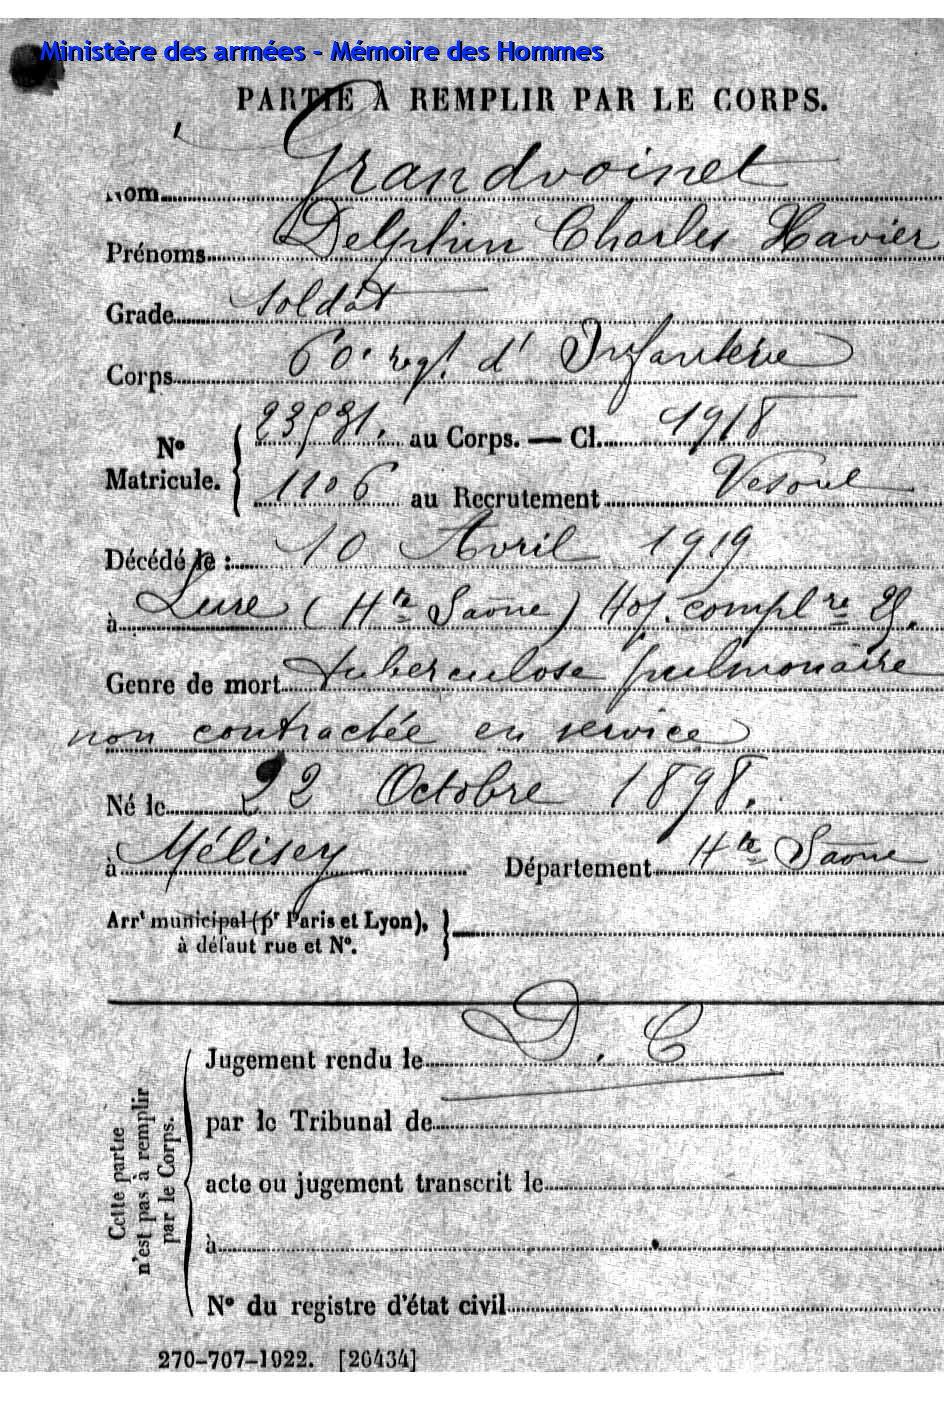 Ministère des armées - Mémoire des Hommes
PARTIE À REMPLIR PAR LE CORPS.
Nom Grandvoinet
Prénoms Delphin Charles Xavier
Grade Soldat
Corps 60e regt. d'Infanterie
No Matricule. { 23531. au Corps. — Cl. 1918
1106 au Recrutement Vesoul
Décédé le : 10 Avril 1919
à Lure (Hte Saône) Hop. complre 25.
Genre de mort tuberculose pulmonaire
non contractée en service
Né le 22 Octobre 1898.
à Mélisey Département Hte Saône
Arrt municipal (pr Paris et Lyon),
à défaut rue et No.
Jugement rendu le D. C
par le Tribunal de
acte ou jugement transcrit le
à
No du registre d'état civil
Cette partie
n'est pas à remplir
par le Corps.
270-707-1922. [26434]